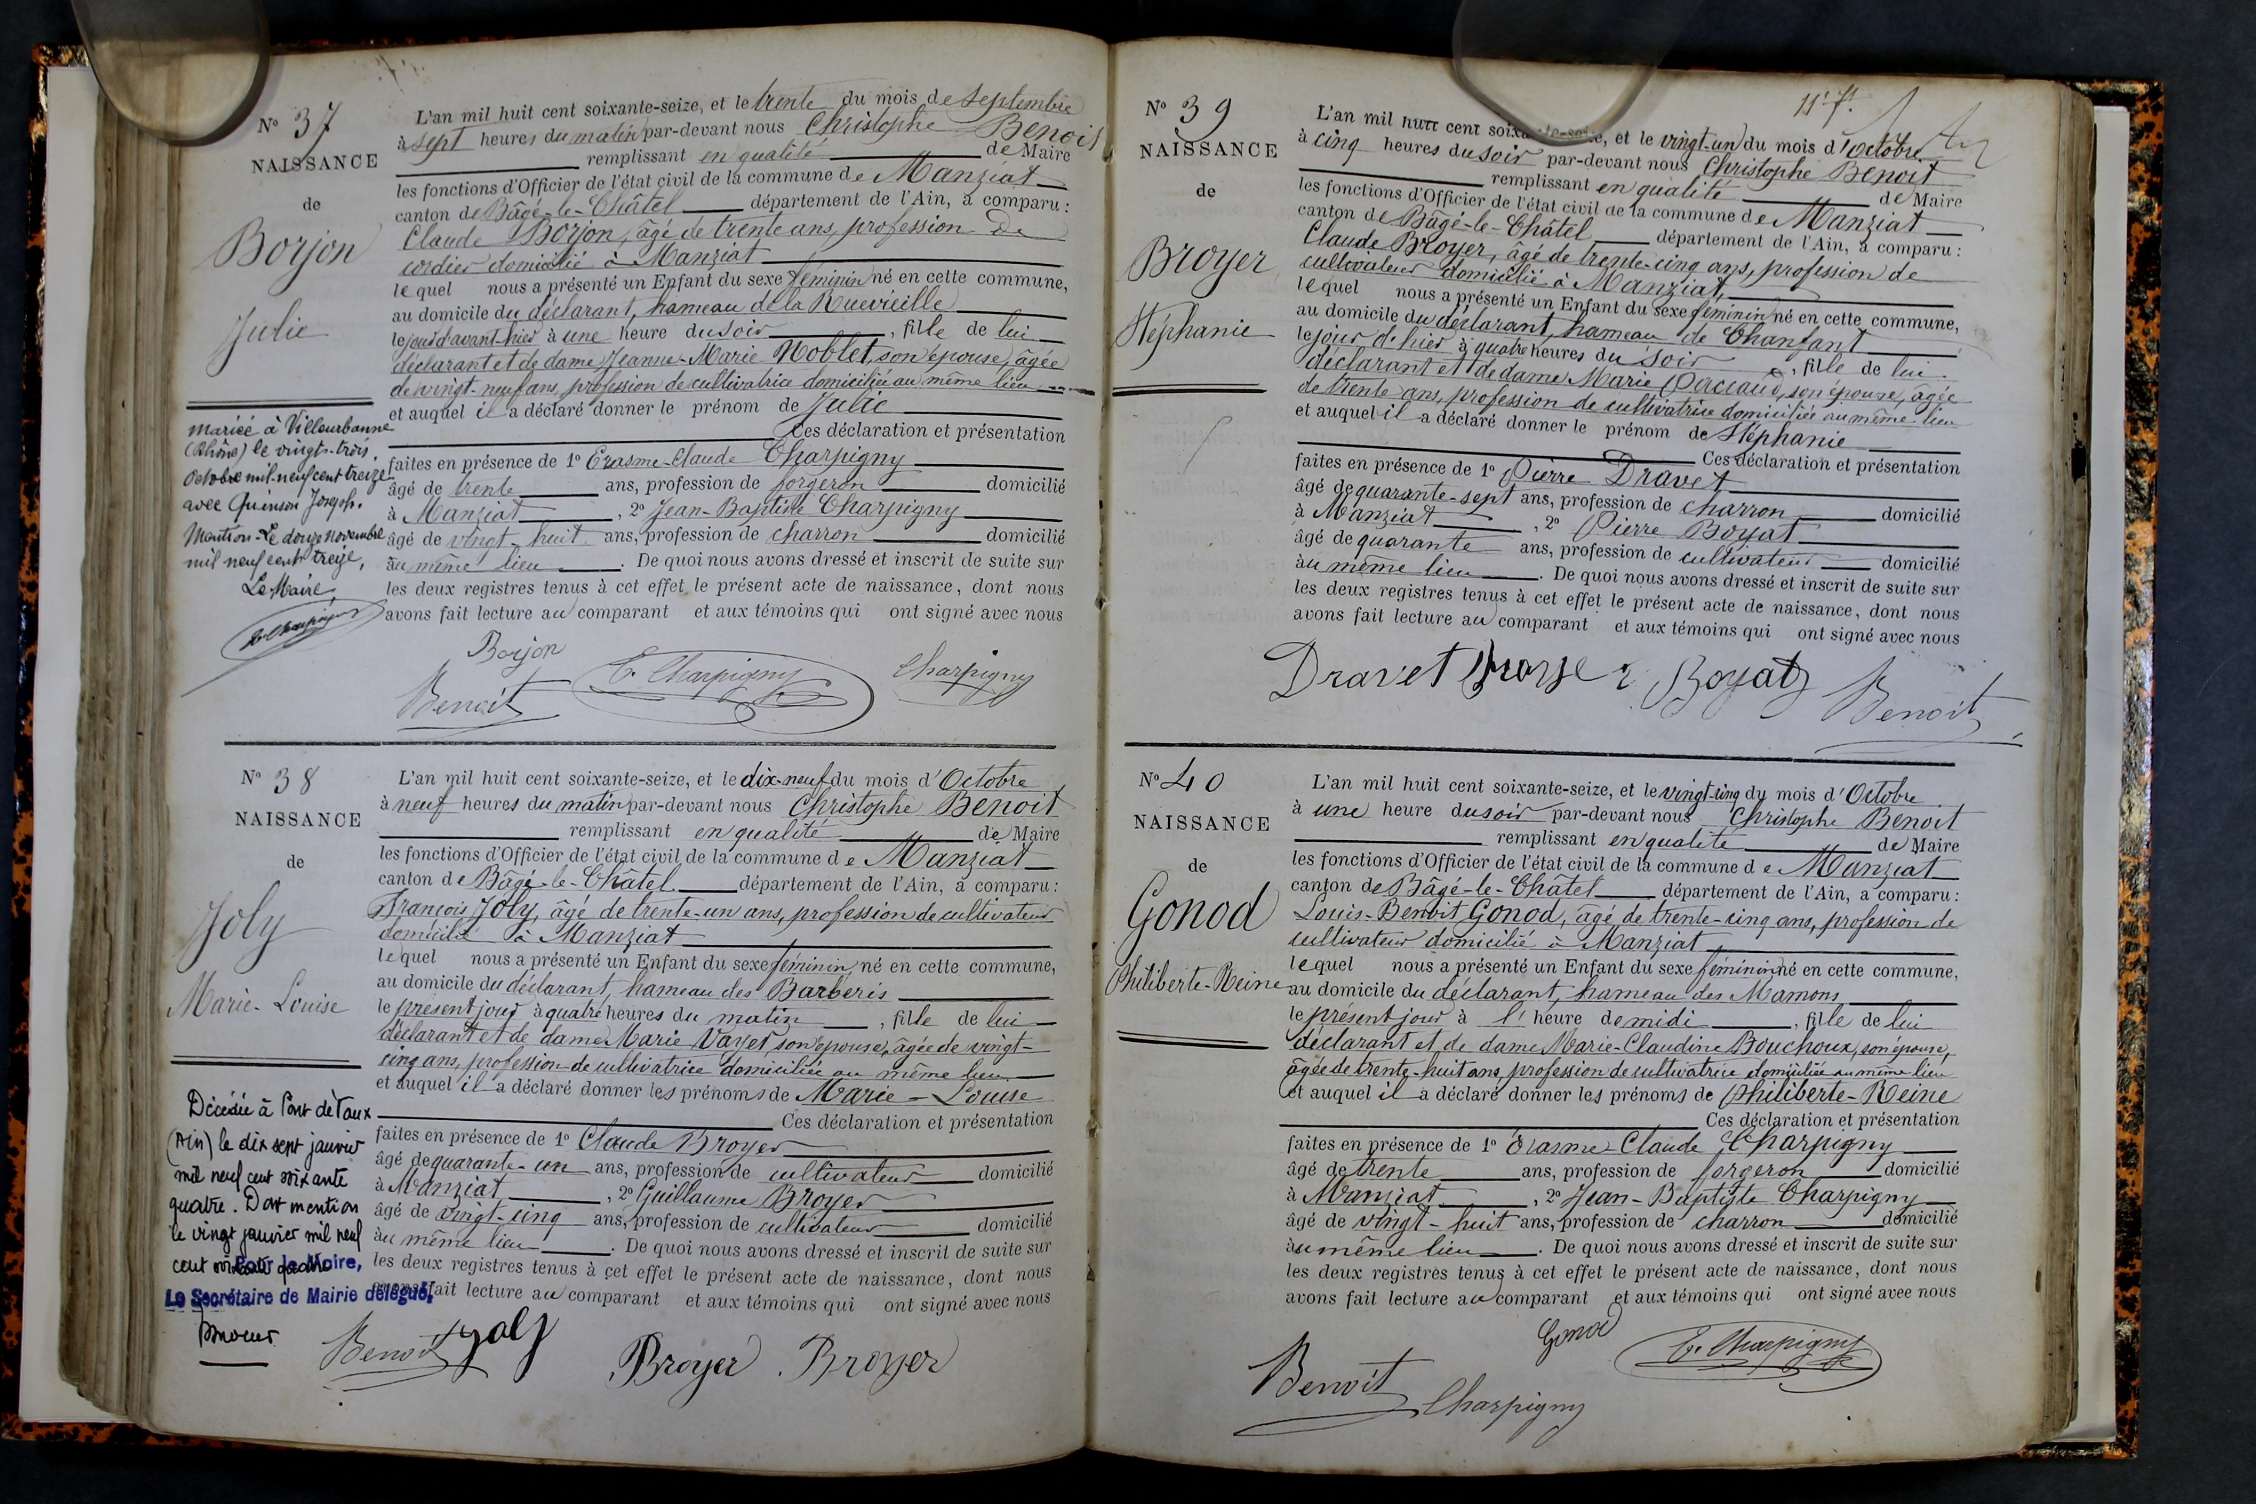 N° 37
NAISSANCE
de
Borjon
Julie
L'an mil huit cent soixante-seize, et le trente du mois de Septembre
à sept heures du matin par-devant nous Christophe Benoit
remplissant en qualité de Maire
les fonctions d'Officier de l'état civil de la commune de Manziat
canton de Bâgé-le-Châtel département de l'Ain, a comparu :
Claude Borjon, âgé de trente ans, profession de
cordier domicilié à Manziat
lequel nous a présenté un Enfant du sexe féminin né en cette commune,
au domicile du déclarant, hameau de la Ruevieille
le jour d'avant-hier à une heure du soir, fille de lui
déclarant et de dame Jeanne-Marie Noblet, son épouse, âgée
de vingt-neuf ans, profession de cultivatrice domiciliée au même lieu
et auquel il a déclaré donner le prénom de Julie
Ces déclaration et présentation
faites en présence de 1° Erasme-Claude Charpigny
âgé de trente ans, profession de forgeron domicilié
à Manziat, 2° Jean-Baptiste Charpigny
âgé de vingt-huit ans, profession de charron domicilié
au même lieu. De quoi nous avons dressé et inscrit de suite sur
les deux registres tenus à cet effet le présent acte de naissance, dont nous
avons fait lecture au comparant et aux témoins qui ont signé avec nous
Borjon
Benoit E. Charpigny Charpigny
mariée à Villeurbanne
(Rhône) le vingt-trois
octobre mil-neuf cent treize
avec Quinson Joseph.
Mention - Le douze novembre
mil neuf cent treize,
Le Maire,
N° 38
NAISSANCE
de
Joly
Marie-Louise
L'an mil huit cent soixante-seize, et le dix-neuf du mois d'Octobre
à neuf heures du matin par-devant nous Christophe Benoit
remplissant en qualité de Maire
les fonctions d'Officier de l'état civil de la commune de Manziat
canton de Bâgé-le-Châtel département de l'Ain, a comparu :
François Joly, âgé de trente-un ans, profession de cultivateur
domicilié à Manziat
lequel nous a présenté un Enfant du sexe féminin, né en cette commune,
au domicile du déclarant, hameau des Barberis
le présent jour à quatre heures du matin, fille de lui
déclarant et de dame Marie Vayet, son épouse, âgée de vingt-
cinq ans, profession de cultivatrice domiciliée au même lieu
et auquel il a déclaré donner les prénoms de Marie-Louise
Ces déclaration et présentation
faites en présence de 1° Claude Broyer
âgé de quarante-un ans, profession de cultivateur domicilié
à Manziat, 2° Guillaume Broyer
âgé de vingt-cinq ans, profession de cultivateur domicilié
au même lieu. De quoi nous avons dressé et inscrit de suite sur
les deux registres tenus à cet effet le présent acte de naissance, dont nous
avons fait lecture au comparant et aux témoins qui ont signé avec nous
Benoit Joly Broyer Broyer
Décédée à Pont de Vaux
(Ain) le dix sept janvier
mil neuf cent soixante
quatre. Dont mention
le vingt janvier mil neuf
cent soixante quatre
Pour le Maire,
Le Secrétaire de Mairie délégué,
N° 39
NAISSANCE
de
Broyer
Stéphanie
L'an mil huit cent soixante-seize, et le vingt-un du mois d'Octobre
à cinq heures du soir par-devant nous Christophe Benoit
remplissant en qualité de Maire
les fonctions d'Officier de l'état civil de la commune de Manziat
canton de Bâgé-le-Châtel département de l'Ain, a comparu :
Claude Broyer, âgé de trente-cinq ans, profession de
cultivateur domicilié à Manziat,
lequel nous a présenté un Enfant du sexe féminin né en cette commune,
au domicile du déclarant, hameau de Chanfant
le jour d'hier à quatre heures du soir, fille de lui
déclarant et de dame Marie Perceaud, son épouse, âgée
de trente ans, profession de cultivatrice domiciliée au même lieu
et auquel il a déclaré donner le prénom de Stéphanie
Ces déclaration et présentation
faites en présence de 1° Pierre Dravet
âgé de quarante-sept ans, profession de charron domicilié
à Manziat, 2° Pierre Boyat
âgé de quarante ans, profession de cultivateur domicilié
au même lieu. De quoi nous avons dressé et inscrit de suite sur
les deux registres tenus à cet effet le présent acte de naissance, dont nous
avons fait lecture au comparant et aux témoins qui ont signé avec nous
Dravet Boyat Benoit
N° 40
NAISSANCE
de
Gonod
Philiberte-Reine
L'an mil huit cent soixante-seize, et le vingt-cinq du mois d'Octobre
à une heure du soir par-devant nous Christophe Benoit
remplissant en qualité de Maire
les fonctions d'Officier de l'état civil de la commune de Manziat
canton de Bâgé-le-Châtel département de l'Ain, a comparu :
Louis-Benoit Gonod, âgé de trente-cinq ans, profession de
cultivateur domicilié à Manziat,
lequel nous a présenté un Enfant du sexe féminin né en cette commune,
au domicile du déclarant, hameau des Mamons
le présent jour à l'heure de midi, fille de lui
déclarant et de dame Marie-Claudine Bouchoux, son épouse,
âgée de trente-huit ans, profession de cultivatrice domiciliée au même lieu
et auquel il a déclaré donner les prénoms de Philiberte-Reine
Ces déclaration et présentation
faites en présence de 1° Erasme-Claude Charpigny
âgé de trente ans, profession de forgeron domicilié
à Manziat, 2° Jean-Baptiste Charpigny
âgé de vingt-huit ans, profession de charron domicilié
au même lieu. De quoi nous avons dressé et inscrit de suite sur
les deux registres tenus à cet effet le présent acte de naissance, dont nous
avons fait lecture au comparant et aux témoins qui ont signé avec nous
Gonod E. Charpigny
Benoit Charpigny